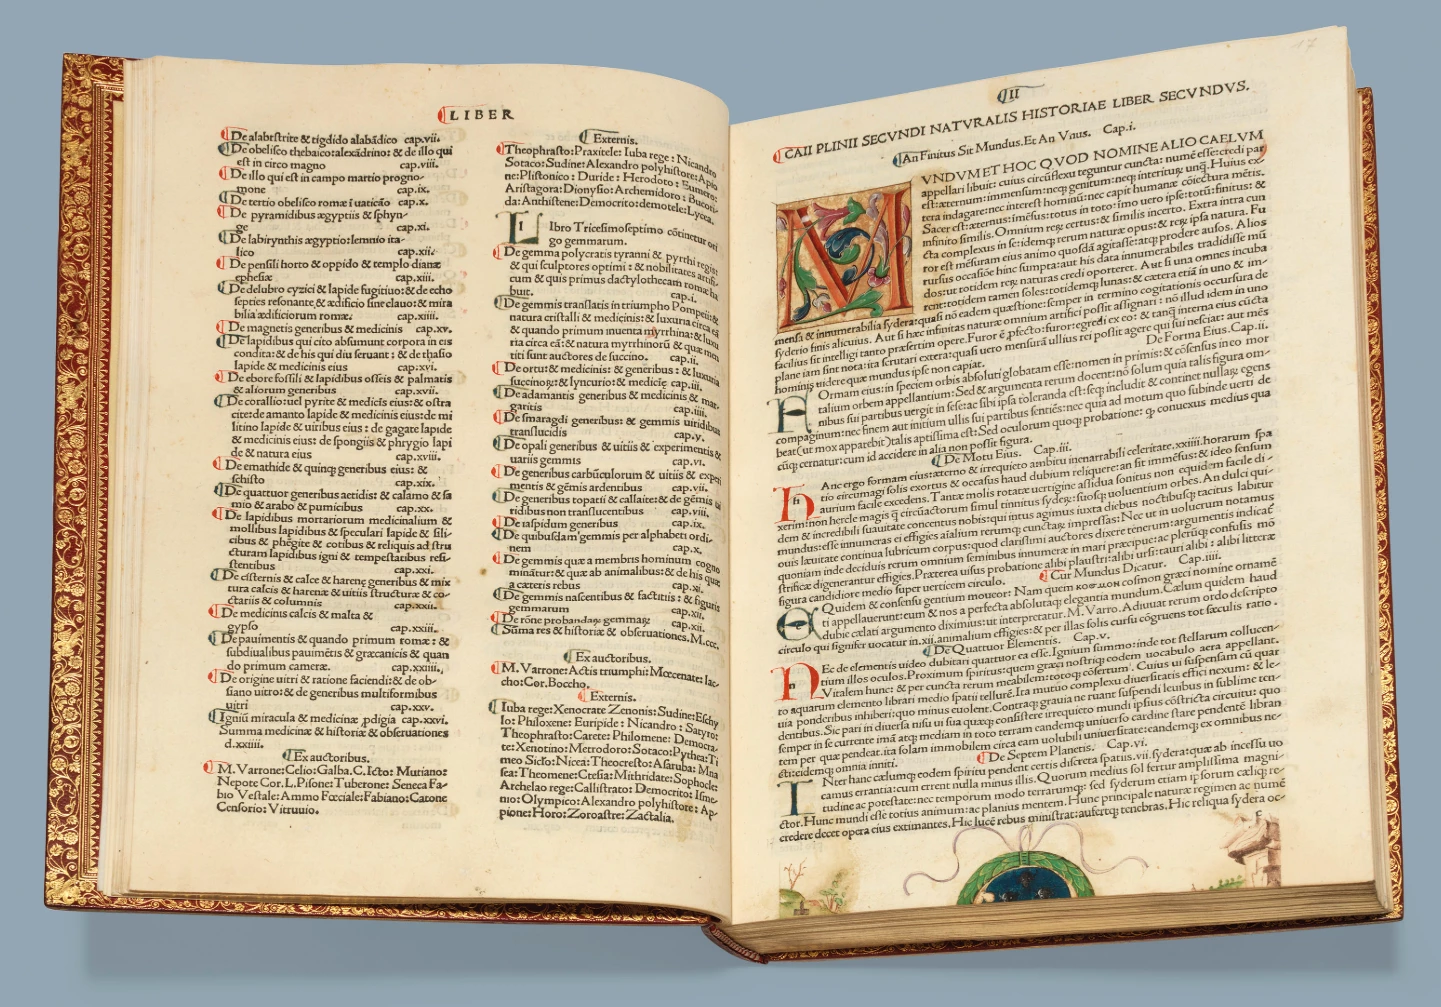 LIBER
De alabrstrite & tigdido alabādico cap.vii.
De obelisco thebaico:alexādrino: & de illo qui
est in circo magno cap.viii.
De illo qui est in campo martio progno-
mone cap.ix.
De tertio obelisco romæ ī uaticāo cap.x.
De pyramidibus ægyptiis & sphyn-
ge cap.xi.
De labirynthis ægyptio:lemnio ita-
lico cap.xii.
De pensili horto & oppido & templo dianæ
ephesiæ cap.xiii.
De delubro cyzici & lapide fugitiuo: & de echo
septies resonante & ædificio sine clauo: & mira
bilia ædificiorum romæ. cap.xiiii.
De magnetis generibus & medicinis cap.xv.
De lapidibus qui cito absumunt corpora in eis
condita: & de his qui diu seruant : & de thasio
lapide & medicinis eius cap.xvi.
De ebore fossili & lapidibus osseis & palmatis
& aliorum generibus cap.xvii.
De corallio uel pyrite & medicīs eius: & ostra
cite:de amanto lapide & medicinis eius:de mi
litino lapide & uitibus eius : de gagate lapide
& medicinis eius: de spongiis & phrygio lapi
de & natura eius cap.xviii.
De emathide & quinq; generibus eius: &
schisto cap.xix.
De quattuor generibus aetidis: & calamo & sa
mio & arabo & pumicibus cap.xx.
De lapidibus mortariorum medicinalium &
mollibus lapidibus & speculari lapide & sili-
cibus & phēgite & cotibus & reliquis ad stru
cturam lapidibus igni & tempestatibus resi-
stentibus cap.xxi.
De cisternis & calce & harenę generibus & mix
tura calcis & harenæ & uitiis structuræ & co-
ctariis & columnis cap.xxii.
De medicinis calcis & malta &
gypso cap.xxiii.
De pauimentis & quando primum romæ : &
subdiualibus pauimētis & græcanicis & quan
do primum cameræ. cap.xxiiii.
De origine uitri & ratione faciendi: & de ob-
siano uitro: & de generibus multiformibus
uitri cap.xxv.
Igniū miracula & medicinæ ,pdigia cap.xxvi.
Summa medicinæ & historiæ & obseruationes
d.xxiiii.
Ex auctoribus.
M.Varrone:Celio:Galba.C.Icto: Mutiano:
Nepote Cor.L.Pisone: Tuberone: Seneca Fa-
bio Vestale: Ammo Fœciale:Fabiano: Catone
Censorio: Vitruuio.
Externis.
Theophrasto: Praxitele: Iuba rege : Nicandro
Sotaco:Sudine:Alexandro polyhistore:Apio
ne:Plistonico : Duride : Herodoto : Eumero:
Aristagora:Dionysio: Archemidoro:
da:Anthistene: Democrito:demotele: Lycea.
Libro Tricesimoseptimo cōtinetur ori
go gemmarum.
De gemma polycratis tyranni & pyrrhi regis:
& qui sculptores optimi : & nobilitates
cum & quis primus dactylothecam romæ ha
buit. cap.i.
De gemmis translatis in triumpho Pompeii: &
natura cristalli & medicinis: & luxuria circa
& quando primum inuenta myrrhina: & luxu
ria circa eā: & natura myrrhinorū & quæ men
titi sunt auctores de succino. cap.ii.
De ortu: & medicinis: & generibus : & luxuria
succinoꝝ: & lyncurio: & medicīe cap.iii.
De adamantis generibus & medicinis & mar-
garitis cap.iiii.
De smaragdi generibus: & gemmis uiridibus
translucidis cap.v.
De opali generibus & uitiis & experimentis &
uariis gemmis cap.vi.
De generibus carbūculorum & uitiis & experi
mentis & gēmis ardentibus cap.vii.
De generibus topatii & callaite: & de gēmis
ridibus non translucentibus cap.viii.
De iaspidum generibus cap.ix.
De quibusdam gemmis per alphabeti ordi-
nem cap.x.
De gemmis quæ a membris hominum cogno
minātur: & quæ ab animalibus: & de his quæ
a cæteris rebus cap.xi.
De gemmis nascentibus & factitiis : & figuris
gemmarum cap.xii.
De rōne probandaꝝ gemmaꝝ cap.xii.
Sūma res & historiæ & obseruationes.M.ccc.
Ex auctoribus.
M.Varrone: Actis triumphi: Mœcenate: Iac-
cho: Cor.Boccho.
Externis.
Iuba rege: Xenocrate Zenonis: Sudine: Eschy
lo: Philoxene: Euripide : Nicandro : Satyro:
Theophrasto: Carete: Philomene: Democra-
te: Xenotino: Metrodoro: Sotaco: Pythea: Ti
meo Siclo: Nicea: Theocresto: Asaruba: Mna
sea: Theomene: Ctesia: Mithridate: Sophocle:
Archelao rege: Callistrato: Democrito: Isme-
nio: Olympico: Alexandro polyhistore : Ap-
pione: Horo: Zoroastre: Zactalia.
17
II
CAII PLINII SECVNDI NATVRALIS HISTORIAE LIBER SECVNDVS.
An Finitus Sit Mundus. Et An Vnus. Cap.i.
MVNDVM ET HOC QVOD NOMINE ALIO CAELVM
appellari libuit: cuius circūflexu teguntur cuncta: numē esse:credi par
est:æternum:immensum:neq; genitum:neq; interiturū unq̄. Huius ex
tera indagare:nec interest hominū:nec capit humanæ cōiectura mētis.
Sacer est:æternus:imēsus:totus in toto:imo uero ipse:totū:finitus: &
infinito similis. Omnium reꝝ certus: & similis incerto. Extra intra cun
cta complexus in se:idemq; rerum naturæ opus: & reꝝ ipsa natura. Fu
ror est mēsuram eius animo quosdā agitasse:atq; prodere ausos. Alios
rursus occasiōe hinc sumpta:aut his data innumerabiles tradidisse mū
dos:ut totidem reꝝ naturas credi oporteret. Aut si una omnes incuba
rent:totidem tamen soles:totidemq; lunas: & cætera etiā in uno & im-
mensa & innumerabilia sydera:quasi nō eadem quæstione:semper in termino cogitationis occursura de
syderio finis alicuius. Aut si hæc infinitas naturæ omnium artifici possit assignari : nō illud idem in uno
facilius sit intelligi tanto præsertim opere. Furor ē ,pfecto:furor:egredi ex eo: & tanq̄ interna eius cūcta
plane iam sint nota:ita scrutari extera:quasi uero mensurā ullius rei possit agere qui sui nesciat: aut mēs
hominis uidere quæ mundus ipse non capiat. De Forma Eius.Cap.ii.
FOrmam eius:in speciem orbis absoluti globatam esse:nomen in primis: & cōsensus in eo mor
talium orbem appellantium: Sed & argumenta rerum docent:nō solum quia talis figura om-
nibus sui partibus uergit in sese:ac sibi ipsa toleranda est:seq; includit & continet nullaꝝ egens
compaginum:nec finem aut initium ullis sui partibus sentiēs:nec quia ad motum quo subinde uerti de
beat(ut mox apparebit)talis aptissima est: Sed oculorum quoq; probatione: q̄ conuexus medius qua
cūq; cernatur:cum id accidere in alia non possit figura.
De Motu Eius. Cap.iii.
HAnc ergo formam eius:æterno & irrequieto ambitu inenarrabili celeritate.xxiiii.horarum spa
tio circumagi solis exortus & occasus haud dubium reliquere:an sit immēsus: & ideo sensum
aurium facile excedens. Tantæ molis rotatæ uertigine assidua sonitus non equidem facile di-
xerim:non hercle magis q̄ circūactorum simul tinnitus sydeꝝ:suosq; uoluentium orbes. An dulci qui-
dem & incredibili suauitate concentus nobis:qui intus agimus iuxta diebus noctibusq; tacitus labitur
mundus:esse innumeras ei effigies aīalium rerumq; cunctaꝝ impressas: Nec ut in uolucrum notamus
ouis læuitate continua lubricum corpus:quod clarissimi auctores dixere tenerum:argumentis indicat᷑
quoniam inde deciduis rerum omnium seminibus innumeræ in mari præcipue:ac plerūq; confusis mō
strificæ digenerantur effigies. Præterea uisus probatione alibi plaustri:alibi ursi:tauri alibi : alibi litteræ
figura candidiore medio super uerticem circulo. Cur Mundus Dicatur. Cap.iiii.
EQuidem & consensu gentium moueor: Nam quem κοσμον cosmon græci nomine ornamē
ti appellauerunt:eum & nos a perfecta absolutaq; elegantia mundum. Cælum quidem haud
dubie cælati argumento diximus:ut interpretatur.M.Varro. Adiuuat rerum ordo descripto
circulo qui signifer uocatur in.xii.animalium effigies: & per illas solis cursu cōgruens tot sæculis ratio.
De Quattuor Elementis. Cap.v.
NEc de elementis uideo dubitari quattuor ea esse. Ignium summo:inde tot stellarum collucen-
tium illos oculos. Proximum spiritus:quem græci nostriq; eodem uocabulo aera appellant.
Vitalem hunc: & per cuncta rerum meabilem:totoq; cōsertum. Cuius ui suspensam cū quar
to aquarum elemento librari medio spatii tellurē. Ita mutuo complexu diuersitatis effici nexum: & le-
uia ponderibus inhiberi:quo minus euolent. Contraq; grauia ne ruant suspendi leuibus in sublime ten-
dentibus. Sic pari in diuersa nisu ui sua quæq; consistere irrequieto mundi ipsius cōstricta circuitu: quo
semper in se currente imā atq; mediam in toto terram eandemq; uniuerso cardine stare pendentē libran
tem per quæ pendeat.ita solam immobilem circa eam uolubili uniuersitate:eandemq; ex omnibus ne-
cti:eidemq; omnia inniti. De Septem Planetis. Cap.vi.
INter hanc cælumq; eodem spiritu pendent certis discreta spatiis.vii.sydera:quæ ab incessu uo
camus errantia:cum errent nulla minus illis. Quorum medius sol fertur amplissima magni-
tudine ac potestate:nec temporum modo terrarumq; sed syderum etiam ipsorum cæliq; re-
ctor. Hunc mundi esse totius animum:ac planius mentem. Hunc principale naturæ regimen ac numē
credere decet opera eius extimantes. Hic lucē rebus ministrat:aufertq; tenebras. Hic reliqua sydera oc-
c